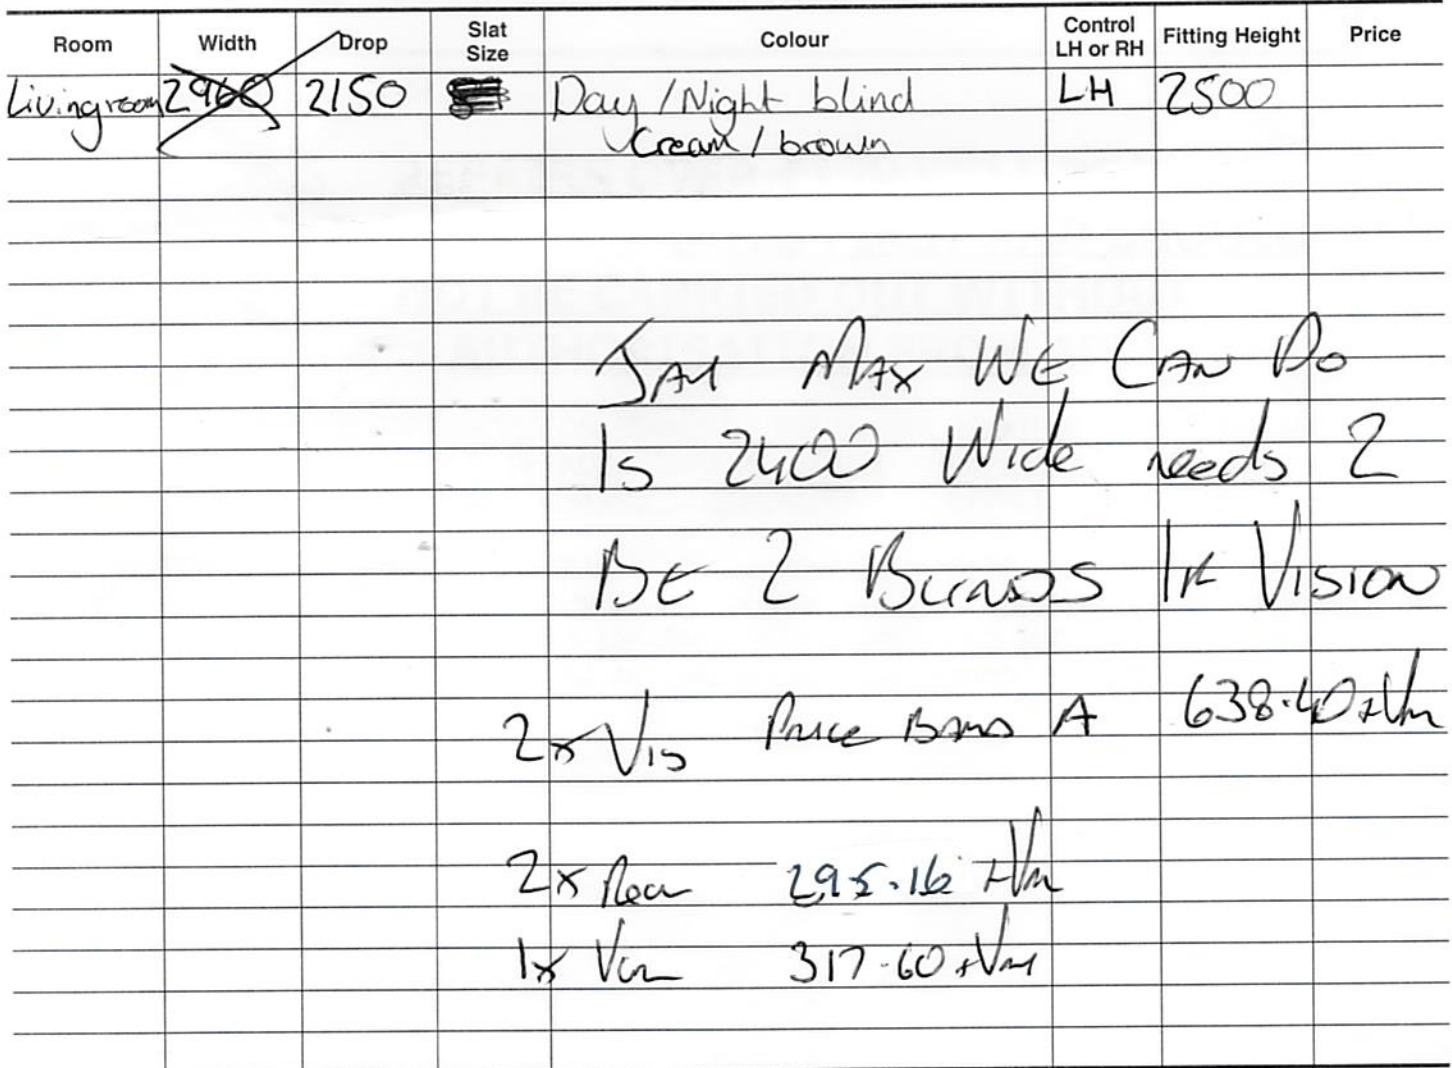 Room Width Drop Slat Size Colour Control LH or RH Fitting Height Price
Livingroom 2960 2150 Day/Night blind LH 2500
Cream/brown
MAX WE CAN DO
IS 2400 Wide needs 2
BE 2 BLINDS IF VISION
2x VIS PRICE BAND A 638.40 + Vat
2x 295.16 + Vat
1x 317.60 + Vat